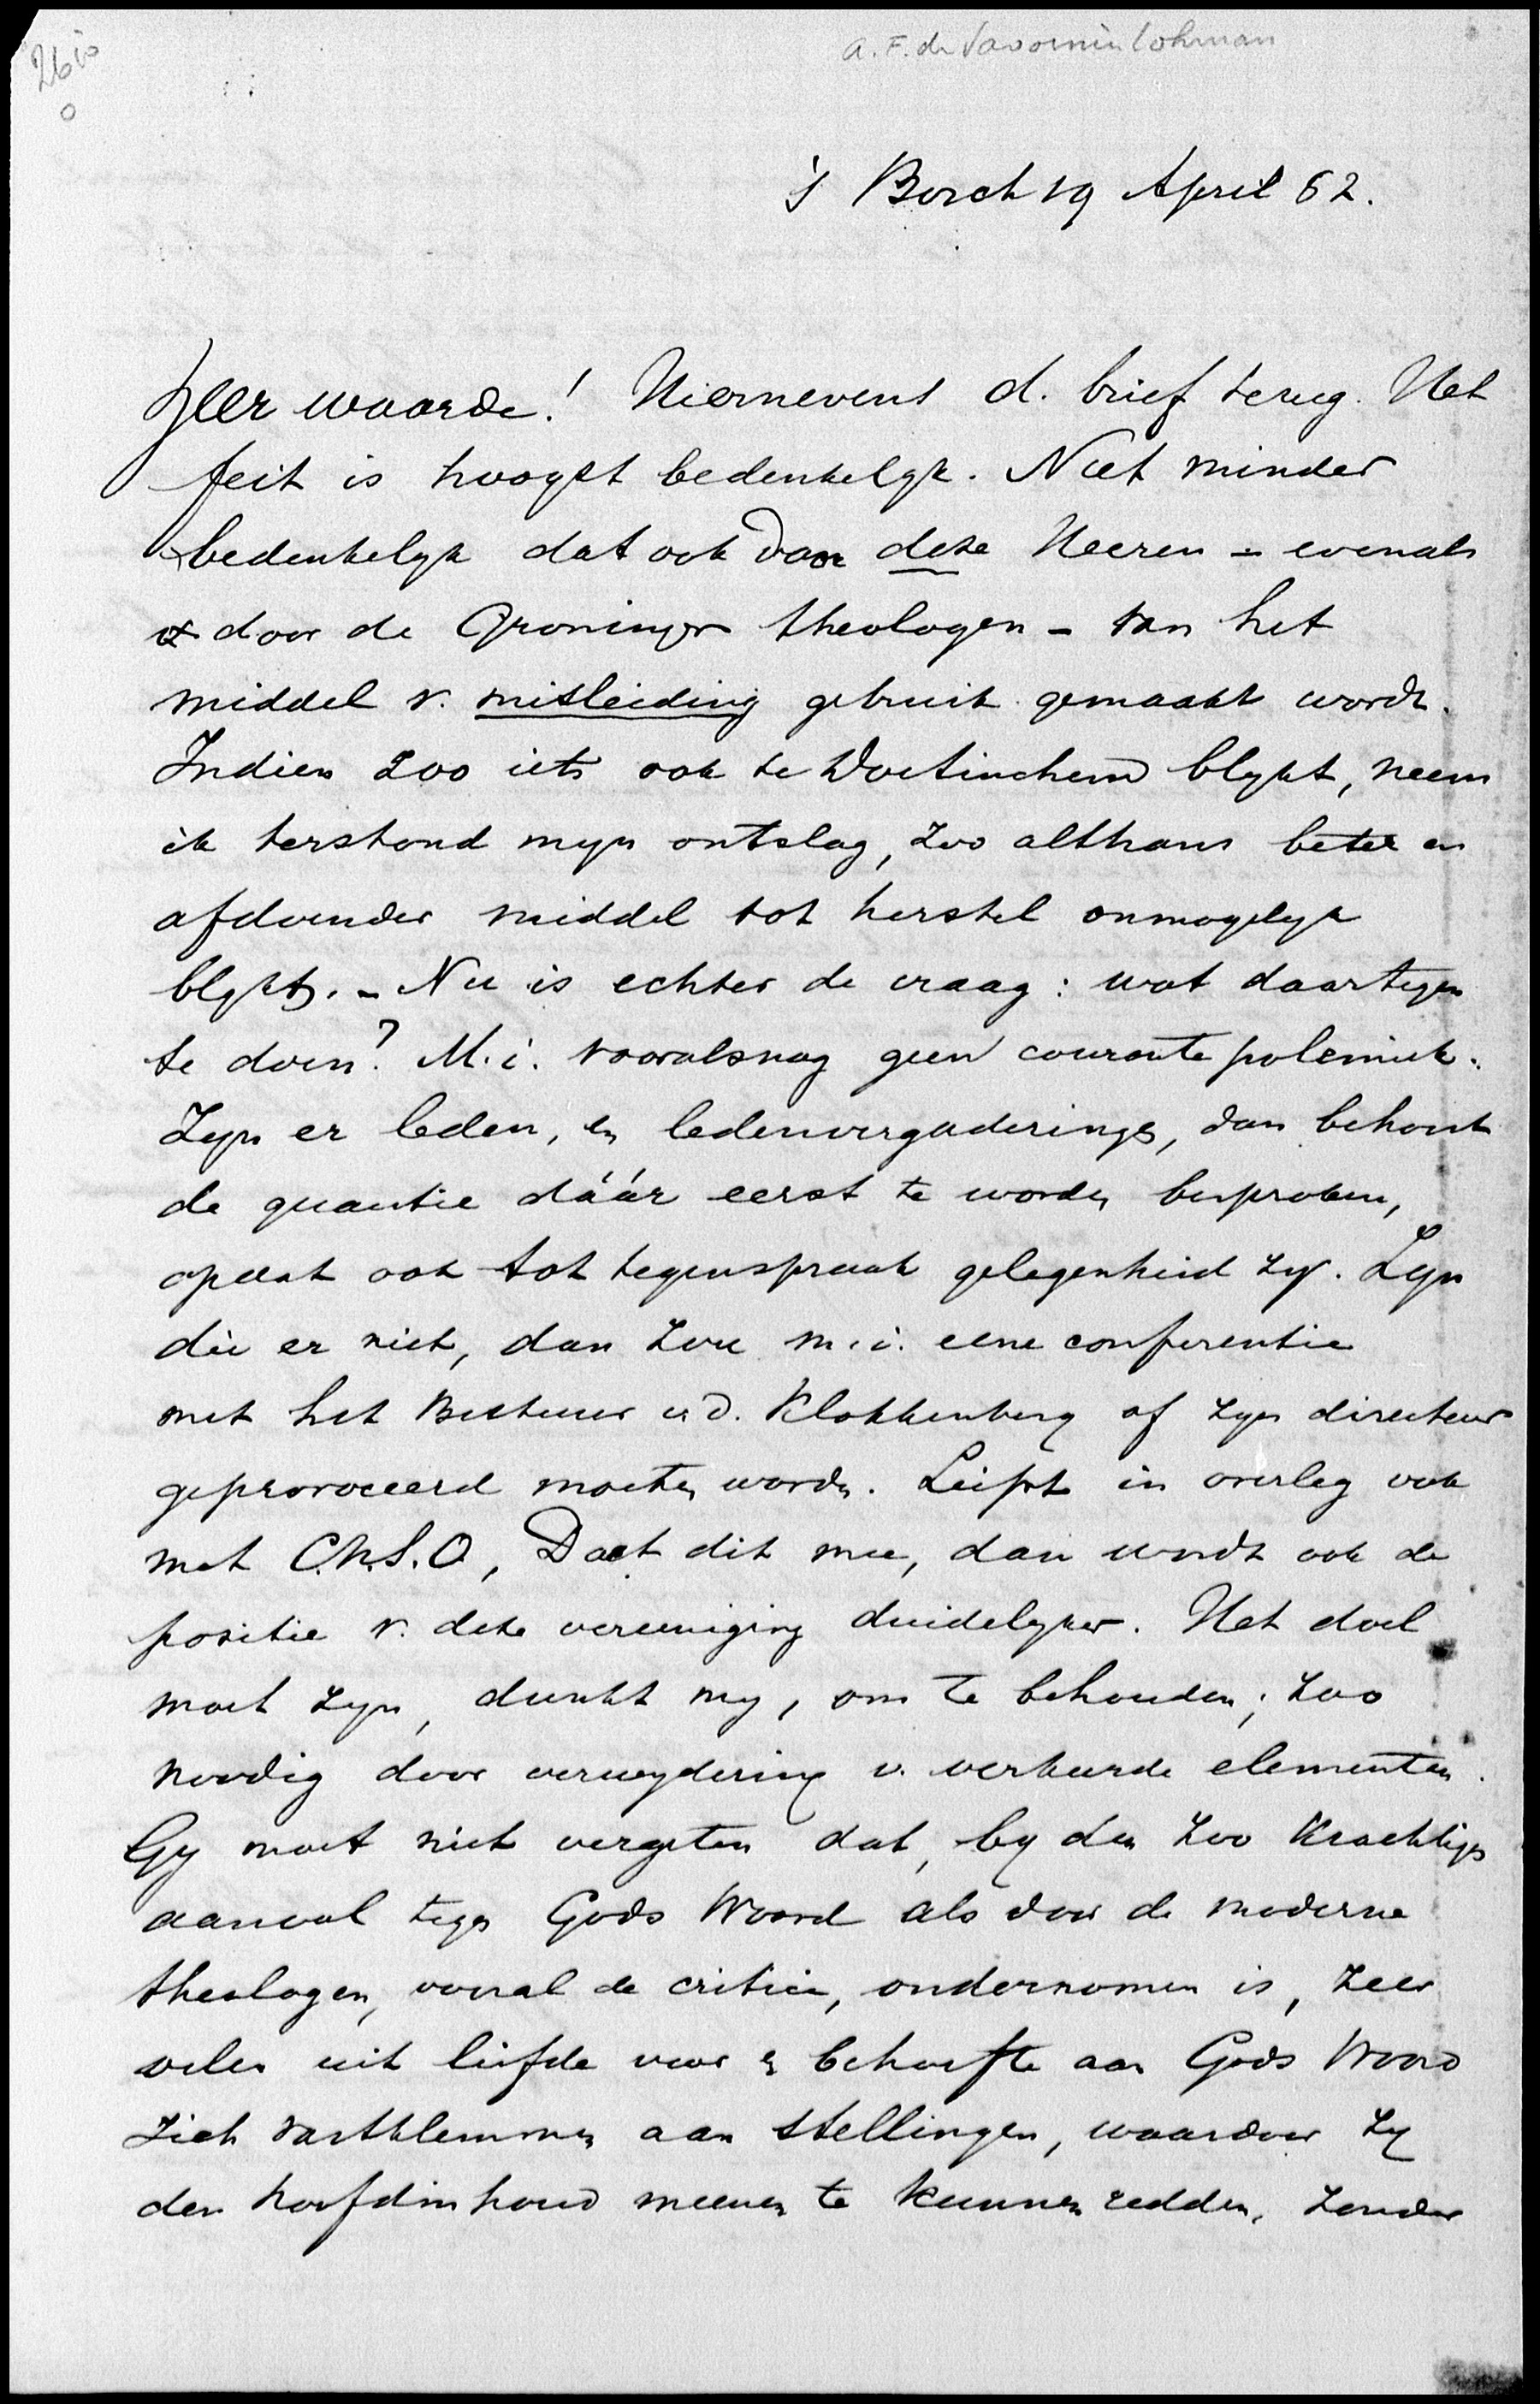 A. F. de Savornin Lohman
's Bosch 19 April 82.
Zeer waarde! Hiernevens d. brief terug. Het
feit is hoogst bedenkelyk. Niet minder
bedenkelyk dat ook door deze Heeren - evenals
door de Groninger theologen - van het
middel v. misleiding gebruik gemaakt wordt.
Indien zoo iets ook te Doetinchem blykt, neem
ik terstond myn ontslag, zoo althans beter en
afdoender middel tot herstel onmogelyk
blykt. - Nu is echter de vraag: wat daartegen
te doen? M.i. vooralsnog geen courante polemiek.
Zyn er leden, en ledenvergaderingen, dan behoort
de quaestie dáár eerst te worden besproken,
opdat ook tot tegenspraak gelegenheid zy. Zyn
die er niet, dan zou m.i. eene conferentie
met het Bestuur v.d. Klokkenberg of zyn directeur
geprovoceerd moeten worden. Liefst in overleg ook
met C.N.S.O, Doet dit mee, dan wordt ook de
positie v. deze vereeniging duidelyker. Het doel
moet zyn, dunkt my, om te behouden; zoo
noodig door verwydering v. verkeerde elementen.
Gy moet niet vergeten dat, by den zoo krachtigen
aanval tegen Gods Woord als door de moderne
theologen, vooral de critici, ondernomen is, zeer
velen uit liefde voor en behoefte aan Gods Woord
zich vastklemmen aan stellingen, waardoor zy
den hoofdinhoud meenen te kunnen redden, zonder